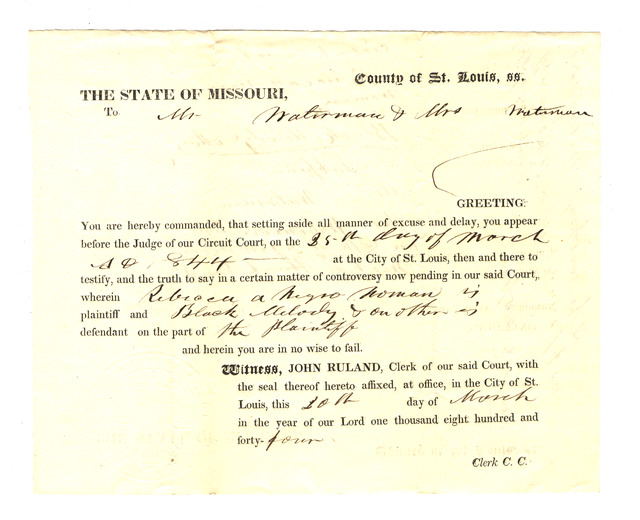 County of St. Louis, ss.
THE STATE OF MISSOURI,
To Mr Waterman & Mrs Waterman
GREETING:
You are hereby commanded, that setting aside all manner of excuse and delay, you appear
before the Judge of our Circuit Court, on the 25th day of March
AD. 1844 — at the City of St. Louis, then and there to
testify, and the truth to say in a certain matter of controversy now pending in our said Court,
wherein Rebecca a Negro Woman is
plaintiff and Black Melody & another is
defendant on the part of the Plaintiff
and herein you are in no wise to fail.
Witness, JOHN RULAND, Clerk of our said Court, with
the seal thereof hereto affixed, at office, in the City of St.
Louis, this 20th day of March
in the year of our Lord one thousand eight hundred and
forty-four
Clerk C. C.